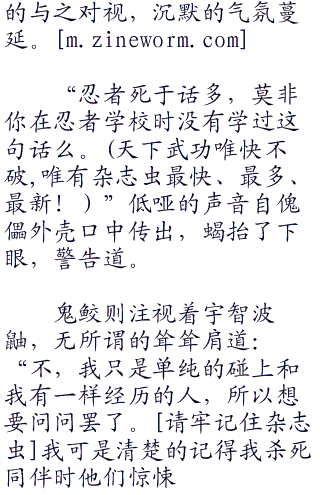 的与之对视，沉默的气氛蔓
延。[m.zineworm.com]
“忍者死于话多，莫非
你在忍者学校时没有学过这
句话么。(天下武功唯快不
破,唯有杂志虫最快、最多、
最新！)”低哑的声音自傀
儡外壳口中传出，蝎抬了下
眼，警告道。
鬼鲛则注视着宇智波
鼬，无所谓的耸耸肩道：
“不，我只是单纯的碰上和
我有一样经历的人，所以想
要问问罢了。[请牢记住杂志
虫]我可是清楚的记得我杀死
同伴时他们惊悚